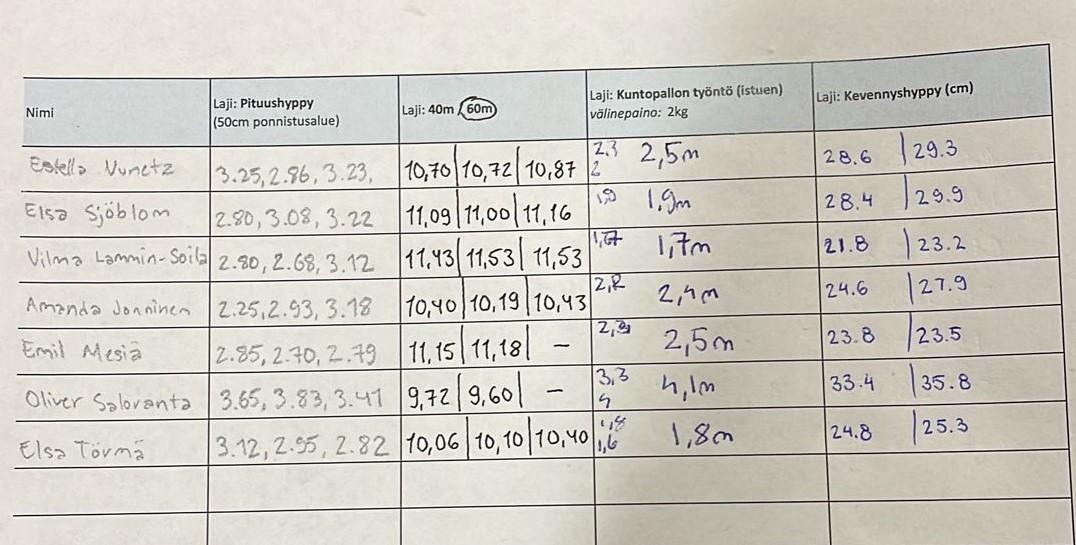 Nimi Laji: Pituushyppy (50cm ponnistusalue) Laji: 40m / 60m Laji: Kuntopallon työntö (istuen) välinepaino: 2kg Laji: Kevennyshyppy (cm)
Estella 3.25, 2.86, 3.23, 10,70 | 10,72 | 10,87 2,3 2 2,5m 28.6 | 29.3
Elsa Sjöblom 2.80, 3.08, 3.22 11,09 | 11,00 | 11,16 1,9m 28.4 | 29.9
Vilma Lammin-Soila 2.80, 2.68, 3.12 11,43 | 11,53 | 11,53 1,7m 21.8 | 23.2
Amanda Jonninen 2.25, 2.93, 3.18 10,40 | 10,19 | 10,43 2,2 2,4m 24.6 | 27.9
Emil Mesiä 2.85, 2.70, 2.79 11,15 | 11,18 | – 2,5m 23.8 | 23.5
Oliver Saloranta 3.65, 3.83, 3.41 9,72 | 9,60 | – 3,3 4 4,1m 33.4 | 35.8
Elsa Törmä 3.12, 2.95, 2.82 10,06 | 10,10 | 10,40 1,6 1,8m 24.8 | 25.3